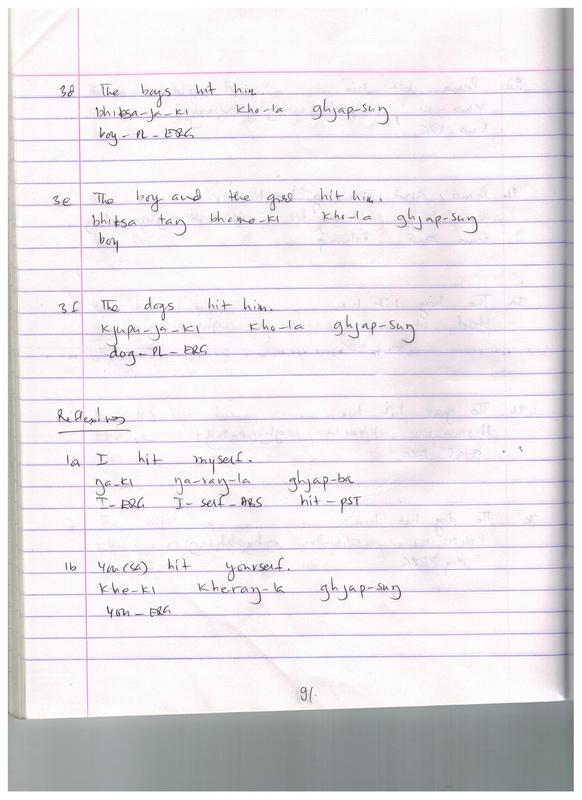 3d The boys hit him.
bhitsa-ja-ki kho-la ghjap-suŋ
boy-PL-ERG
3e The boy and the girl hit him.
bhitsa taŋ bhomo-ki kho-la ghjap-suŋ
boy
3f The dogs hit him.
kjupu-ja-ki kho-la ghjap-suŋ
dog-PL-ERG
Reflexives
1a I hit myself.
ŋa-ki ŋa-raŋ-la ghjap-ba
I-ERG I-self-ABS hit-PST
1b You(SG) hit yourself.
khe-ki kheraŋ-la ghjap-suŋ
you-ERG
91.